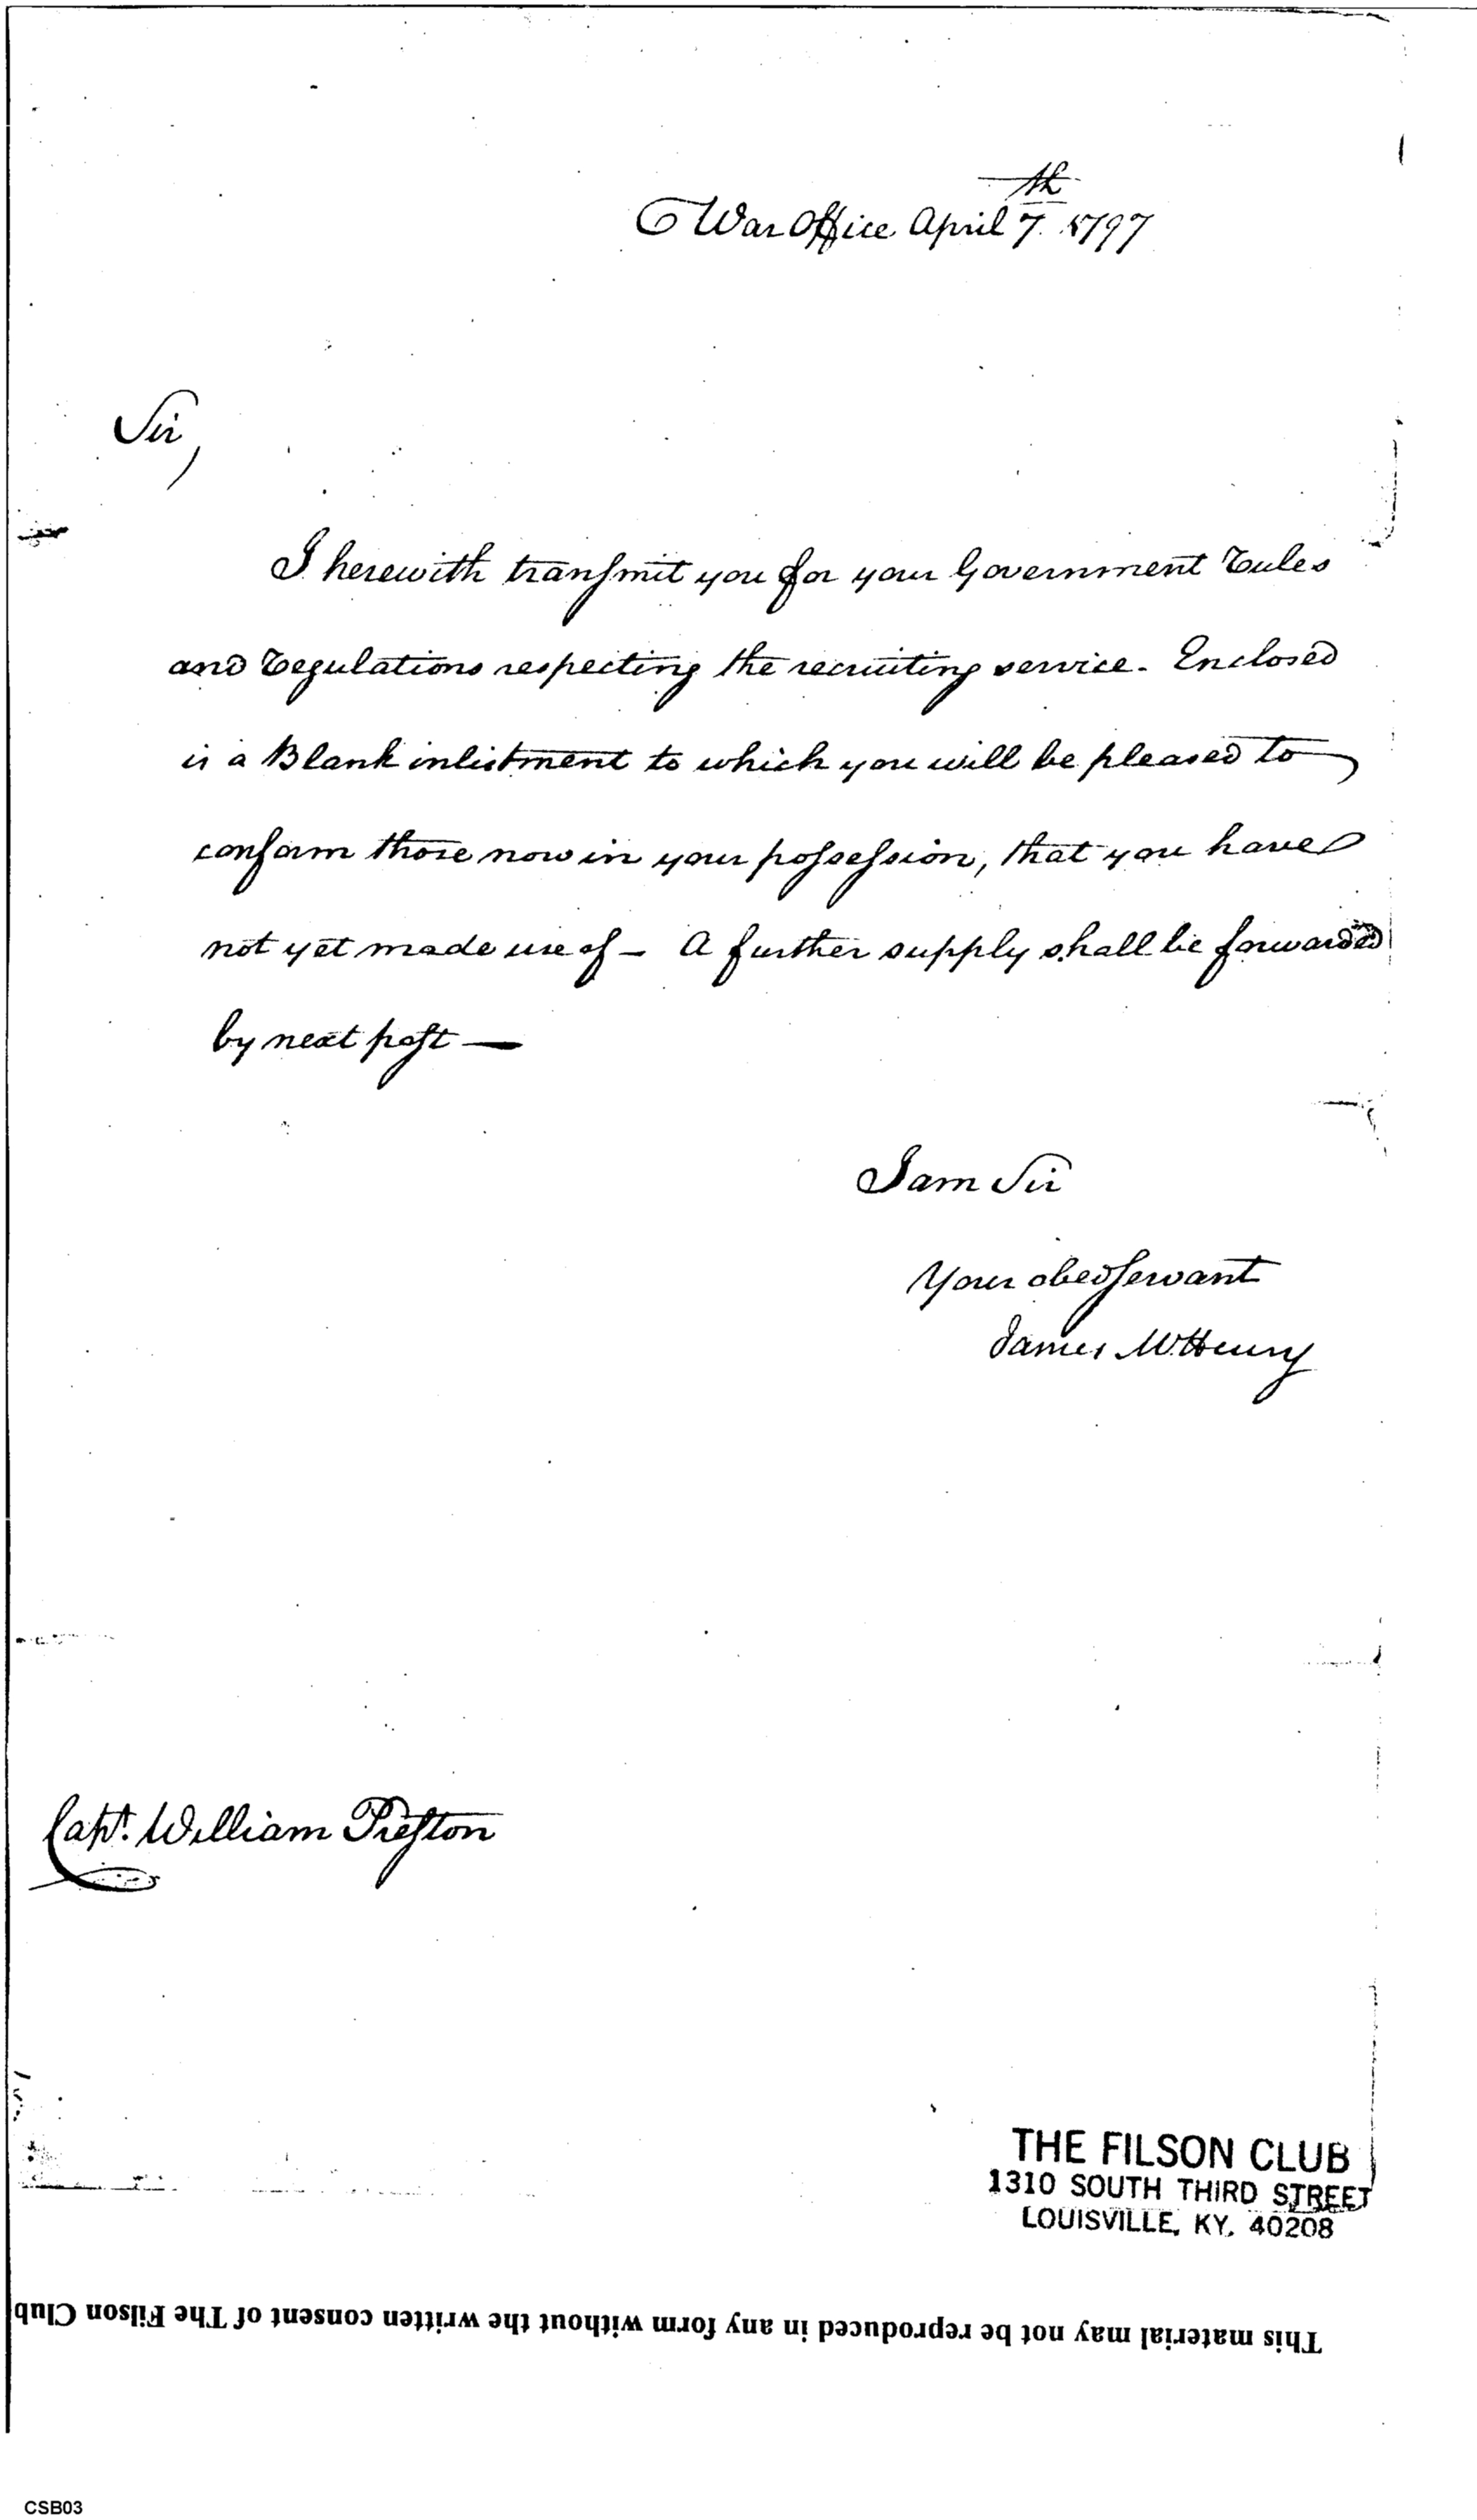 War Office April 7th 1797
Sir,
I herewith transmit you for your Government rules
and regulations respecting the recruiting service. Enclosed
is a Blank inlistment to which you will be pleased to
conform those now in your possession, that you have
not yet made use of — A further supply shall be forwarded
by next post —
I am Sir
Your obed servant
James McHenry
Capt. William Preston
THE FILSON CLUB
1310 SOUTH THIRD STREET
LOUISVILLE, KY. 40208
This material may not be reproduced in any form without the written consent of The Filson Club
CSB03